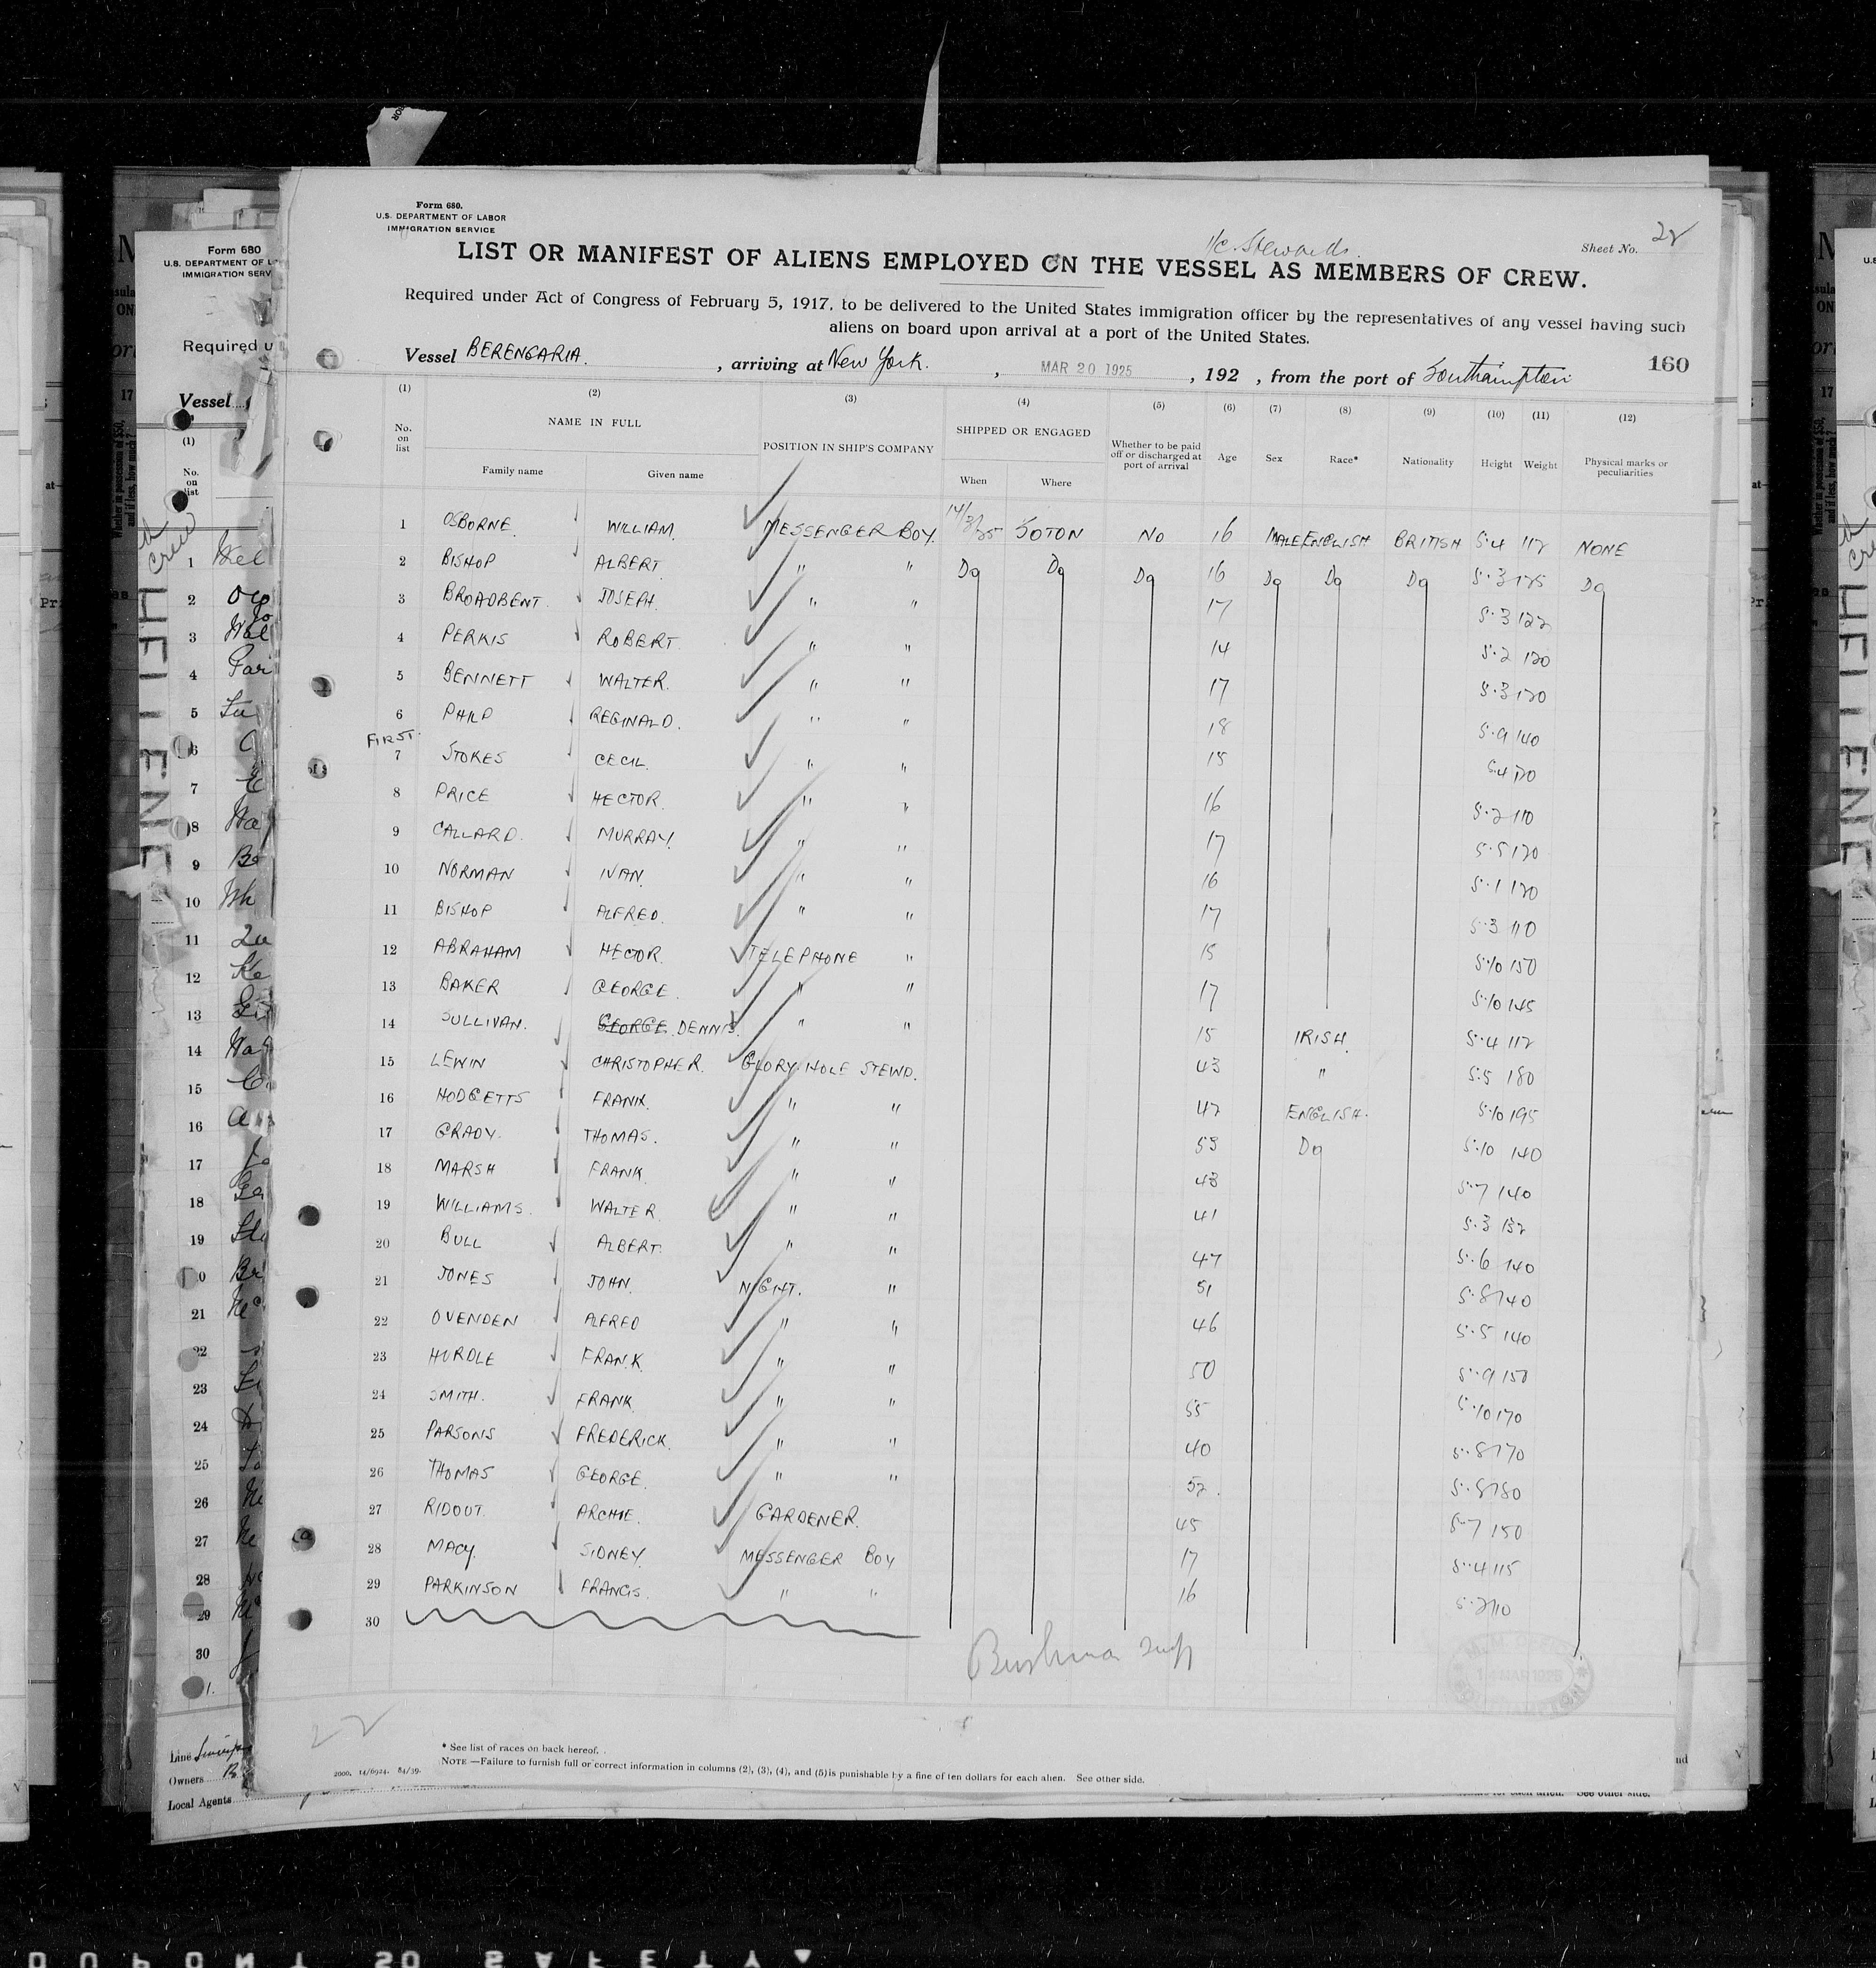 Form 680.
U.S. DEPARTMENT OF LABOR
IMMIGRATION SERVICE
1/c. Stewards.
Sheet No. 22
LIST OR MANIFEST OF ALIENS EMPLOYED ON THE VESSEL AS MEMBERS OF CREW.
Required under Act of Congress of February 5, 1917, to be delivered to the United States immigration officer by the representatives of any vessel having such
aliens on board upon arrival at a port of the United States.
Vessel BERENGARIA. , arriving at New York. , MAR 20 1925 , 192 , from the port of Southampton
160
(1) (2) (3) (4) (5) (6) (7) (8) (9) (10) (11) (12)
No. on list NAME IN FULL POSITION IN SHIP'S COMPANY SHIPPED OR ENGAGED Whether to be paid off or discharged at port of arrival Age Sex Race* Nationality Height Weight Physical marks or peculiarities
Family name Given name When Where
1 OSBORNE. WILLIAM. MESSENGER BOY. 14/3/25 SOTON NO 16 MALE ENGLISH BRITISH 5.4 112 NONE
2 BISHOP ALBERT. " " Do Do Do 16 Do Do Do 5.3 125 Do
3 BROADBENT. JOSEPH. " " 17 5.3 122
4 PERKIS ROBERT. " " 14 5.2 120
5 BENNETT WALTER. " " 17 5.3 120
6 PHILP REGINALD. " " 18 5.9 140
FIRST.
7 STOKES CECIL. " " 15 5.4 120
8 PRICE HECTOR. " " 16 5.2 110
9 CALLARD. MURRAY. " " 17 5.5 120
10 NORMAN IVAN. " " 16 5.1 120
11 BISHOP ALFRED. " " 17 5.3 110
12 ABRAHAM HECTOR. TELEPHONE " 15 5.10 150
13 BAKER GEORGE. " " 17 5.10 145
14 SULLIVAN. GEORGE. DENNIS. " " 15 IRISH. 5.4 112
15 LEWIN CHRISTOPHER. GLORY HOLE STEWD. 43 " 5.5 180
16 HODGETTS FRANK. " " 42 ENGLISH. 5.10 195
17 GRADY. THOMAS. " " 53 Do 5.10 140
18 MARSH FRANK. " " 43 5.7 140
19 WILLIAMS. WALTER. " " 41 5.3 132
20 BULL ALBERT. " " 47 5.6 140
21 JONES JOHN. NIGHT. " 51 5.8 140
22 OVENDEN ALFRED " " 46 5.5 140
23 HURDLE FRANK " " 50 5.9 150
24 SMITH. FRANK. " " 55 5.10 170
25 PARSONS FREDERICK. " " 40 5.8 170
26 THOMAS GEORGE. " " 52. 5.8 180
27 RIDOUT. ARCHIE. GARDENER. 45 5.7 150
28 MACY. SIDNEY. MESSENGER BOY 17 5.4 115
29 PARKINSON FRANCIS. " " 16 5.2 110
30
22
* See list of races on back hereof.
NOTE —Failure to furnish full or correct information in columns (2), (3), (4), and (5) is punishable by a fine of ten dollars for each alien. See other side.
2000. 14/6924. 84/39.
Form 680
Required u
Vessel
(1)
No. on list
Owners
Local Agents